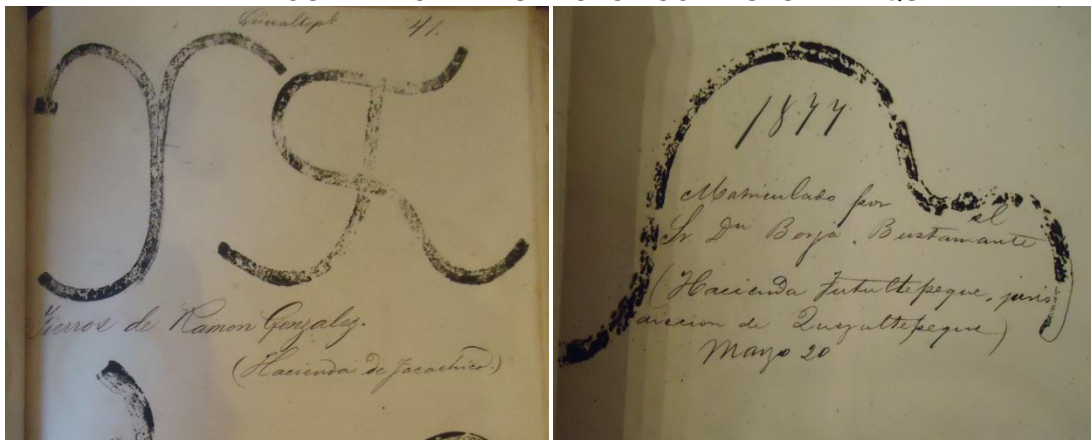 41.
Fierros de Ramon Gonzalez.
(Hacienda de
1877.
Matriculado por el
Sr Dn Borja Bustamante
(Hacienda Tutultepeque, juris
diccion de Quezaltepeque)
Mayo 20